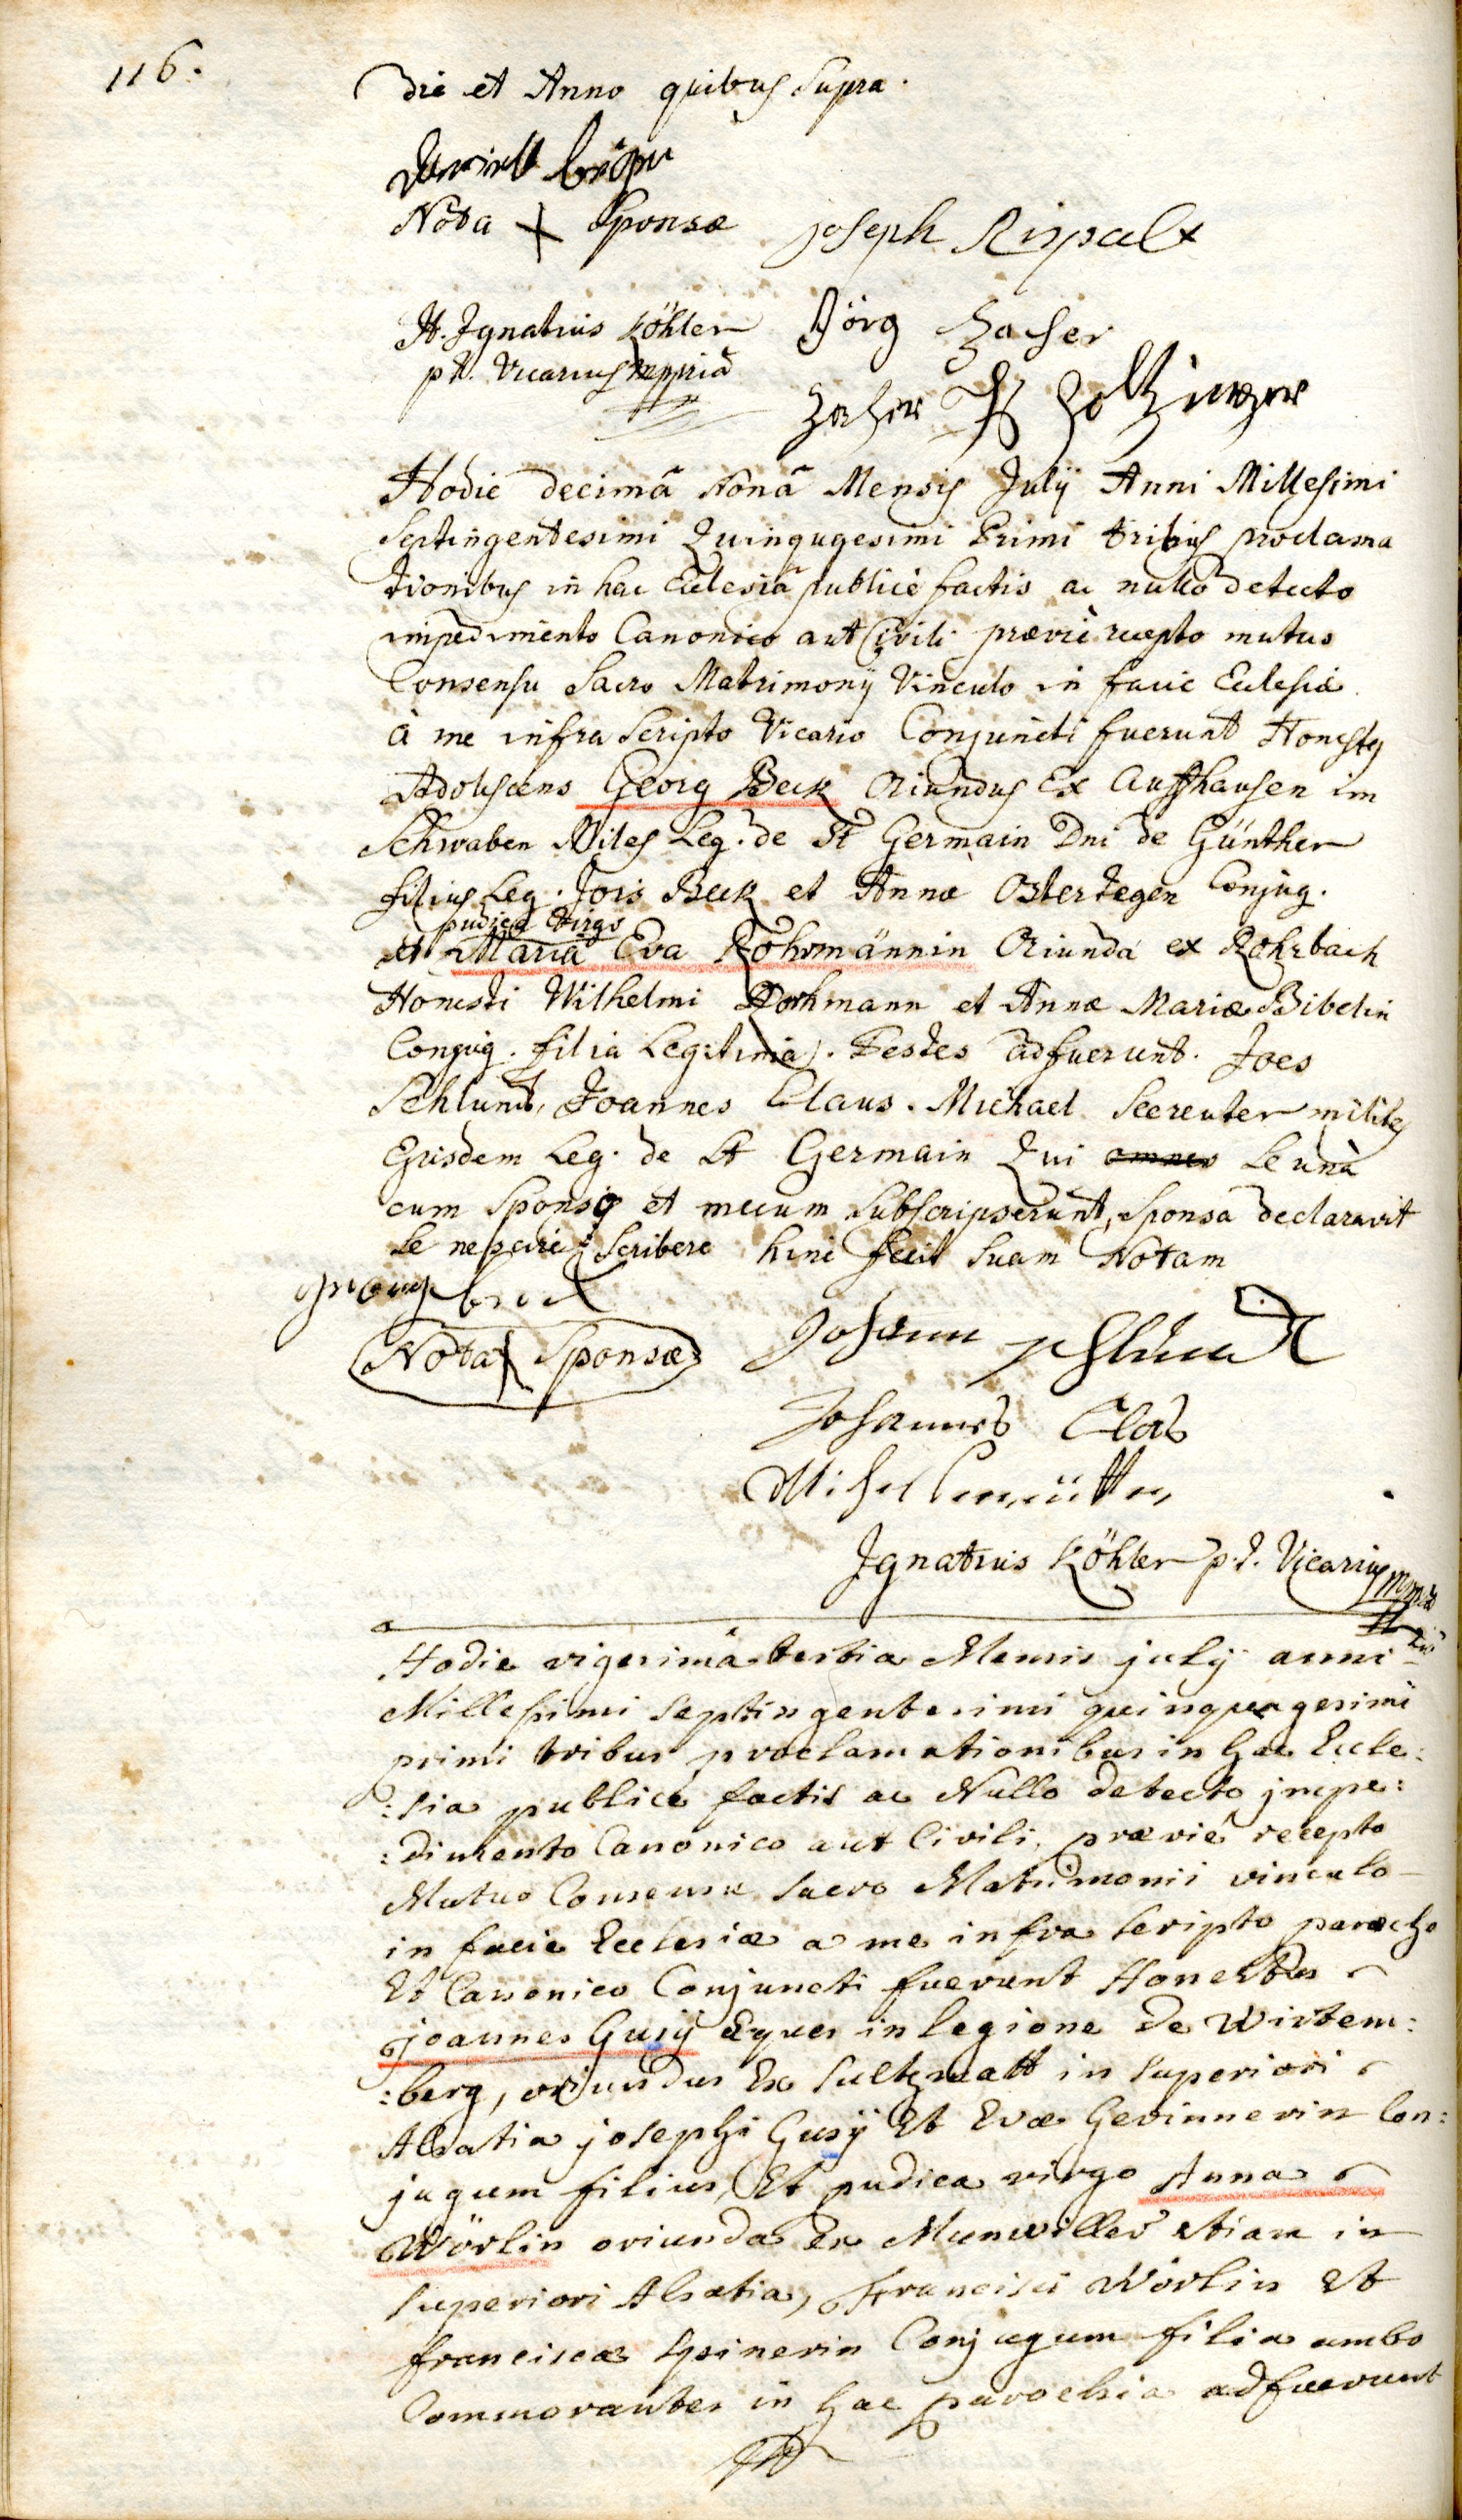 116.
Die et Anno quibus Supra.
Nota + Sponsæ
Joseph Rispalx
H. Ignatius Köhler
Jörg Haser
p.t. Vicarius mppriâ
Hodie decimâ Nonâ Mensis Julÿ Anni Millesimi
Septingentesimi Quinqugesimi Primi tribus proclama
tionibus in hac Ecclesiâ publicè factis ac nullo detecto
impedimento Canonico aut Civili præviè recepto mutuo
Consensu Sacro Matrimonÿ Vinculo in facie Ecclesiæ
à me infra Scripto Vicario Conjuncti fuerunt Honestus
Adolescens Georg Beck Oriundus Ex Auffhausen im
Schwaben Miles Leg. de St Germain Dni de Günther
filius Leg. Jois Beck et Annæ Ostertegen Conjug.
pudica Virgo
et Maria Eva Rohrmännin Oriunda ex Rohrbach
Honesti Wilhelmi Rorhmann et Annæ Mariæ Bibelin
Conjug. filia Legitima. Testes adfuerunt. Joes
Schlund, Joannes Claus. Michael Seereuter milites
Ejusdem Leg. de St Germain Qui omnes Se unà
cum Sponso et mecum SubScripserunt, Sponsa declaravit
Se nescire Scribere hinc fecit Suam Notam
Georg beck
Nota + Sponsæ
Johann schlund
Johannes Clas
Ignatius Köhler p.t. Vicarius mppriâ
Hodie vigesimâ tertia Mensis julÿ anni
Millesimi septingentesimi quinquagesimi
primi tribus proclamationibus in hac Eccle:
:sia publice factis ac Nullo detecto impe:
:dimento Canonico aut Civili, præviè recepto
Mutuo Consensu sacro Matrimonii vinculo
in facie Ecclesiæ a me infra scripto parocho
Et Canonico Conjuncti fuerunt Honestus
joannes Gusÿ Eques in legione de Wirtem:
:berg, oriundus Ex Sultzmatt in superiori
Alsatia josephi Gusÿ Et Evæ Gevinnerin Con:
jugum filius, Et pudica virgo Anna
Wörlin oriunda Ex Munwiller etiam in
superiori Alsatia, Francisci Wörlin Et
franciscæ Spinerin Conjugum filia ambo
Commorantes in hac parochia adfuerunt